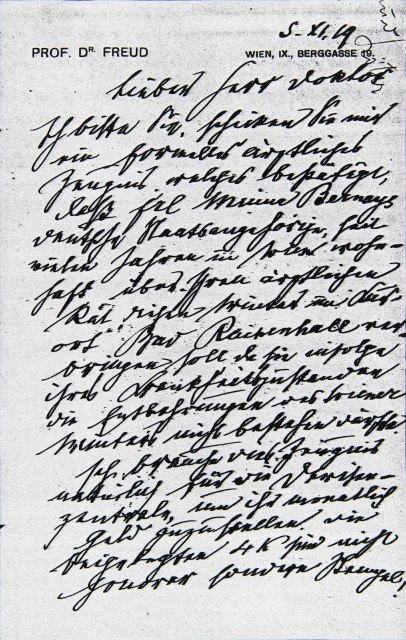 5. XI. 19
PROF. DR. FREUD
WIEN, IX., BERGGASSE 19.
Lieber Herr Doktor
Ich bitte Sie, schicken Sie mir
ein formelles ärztliches
Zeugnis welches bestätigt,
daß Frl Minna Bernays
deutsche Staatsangehörige, seit
vielen Jahren in Wien wohn-
haft über Ihren ärztlichen
Rat diesen Winter im Kur-
ort Bad Reichenhall ver-
bringen soll da sie infolge
ihres Krankheitszustandes
die Entbehrungen des Wiener
Winters nicht bestehen dürfte
Ich brauche das Zeugnis
natürlich für die Devisen-
zentrale, um ihr monatlich
Geld zuzustellen. Die
beigelegten 4 K sind nicht
Honorar sondern Stempel,